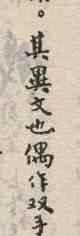 。其異文也偶作双手